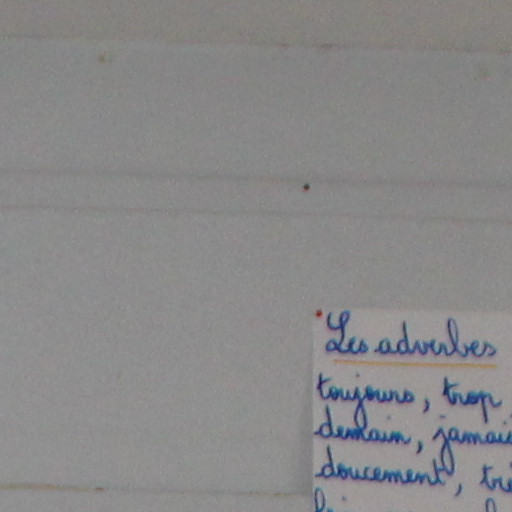 Les adverbes
toujours, trop
demain, jamais
doucement,